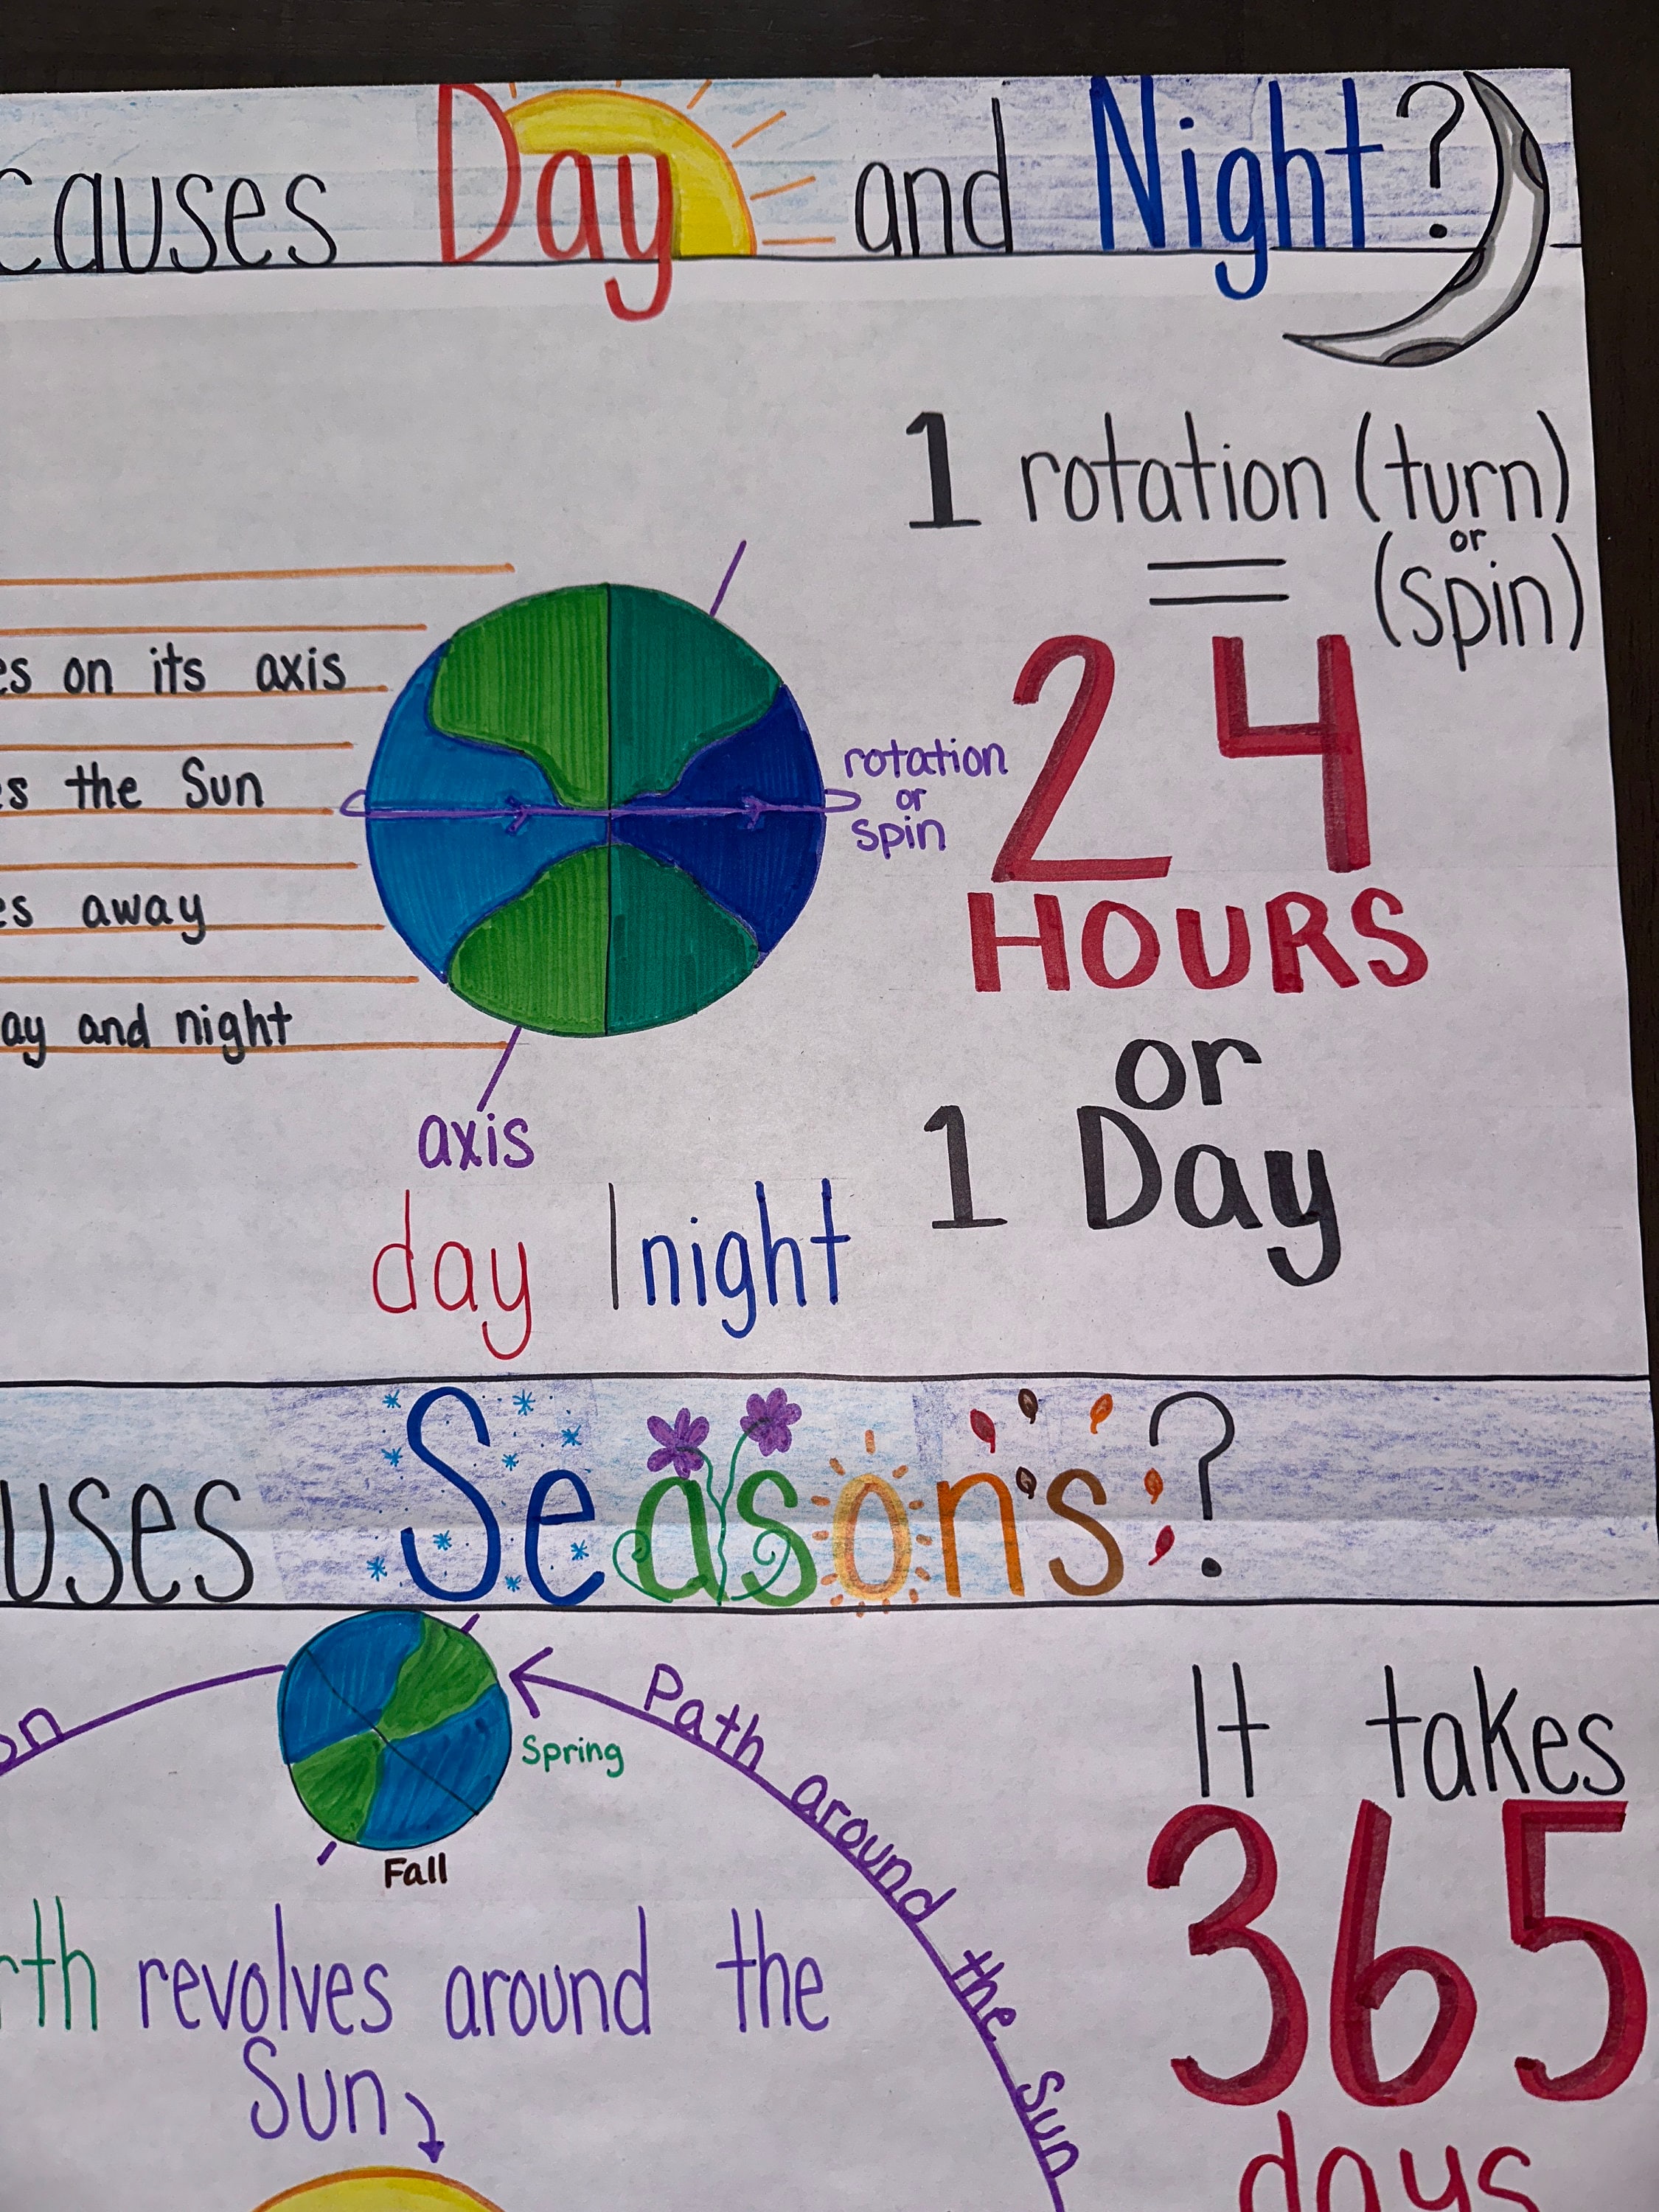 causes Day and Night?
1 rotation (turn)
or
= (spin)
es on its axis
24
rotation
or
spin
es the Sun
HOURS
es away
ay and night
or
axis
1 Day
day | night
uses Seasons?
on
Path around the Sun
It takes
Spring
365
Fall
rth revolves around the
Sun
days